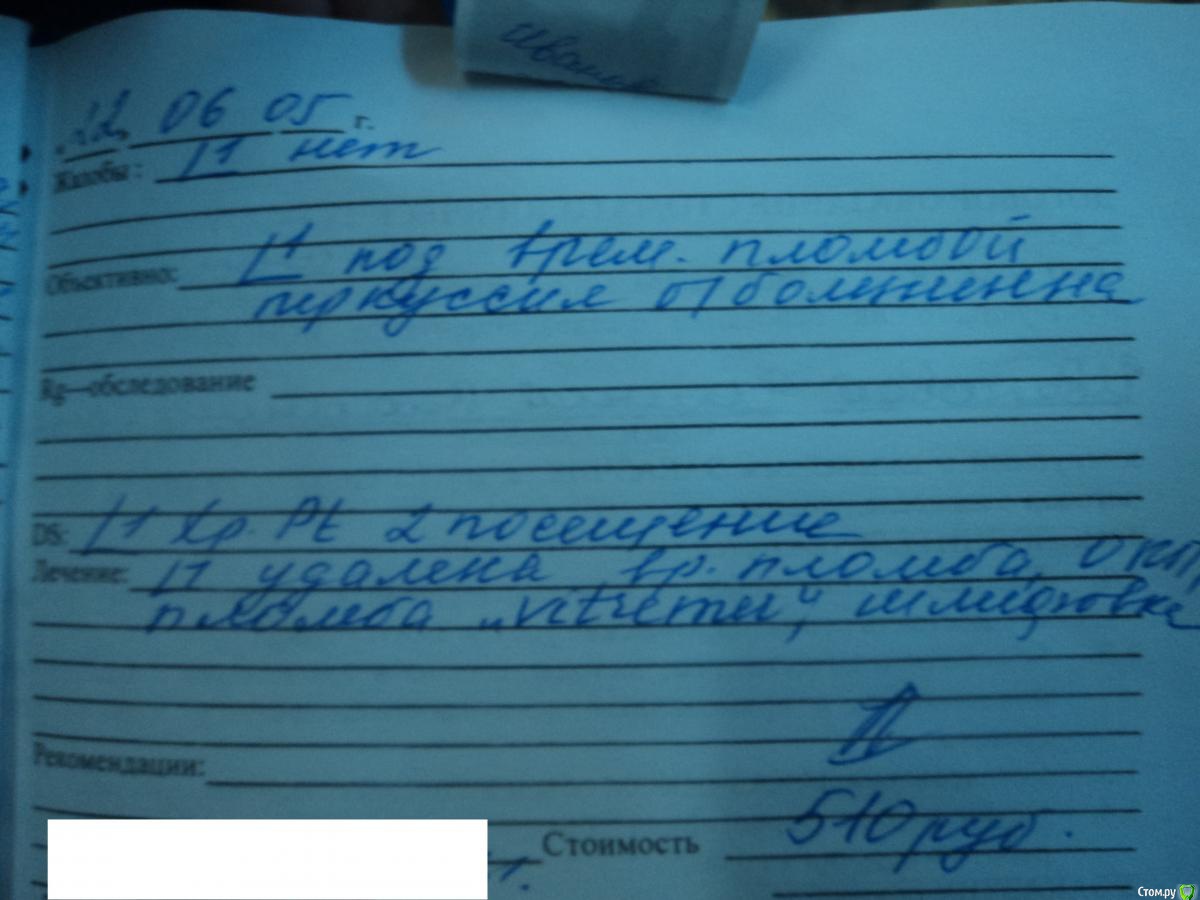 22. 06 05 г.
Жалобы: |1 нет
Объективно: |1 под врем. пломбой
перкуссия б/болезненна
Rg—обследование
DS: |1 Хр. Pt 2 посещение
Лечение: |1 удалена вр. пломба,
пломба „vitremer“, шлифовка
Рекомендации:
510 руб.
Стоимость
Стом.ру